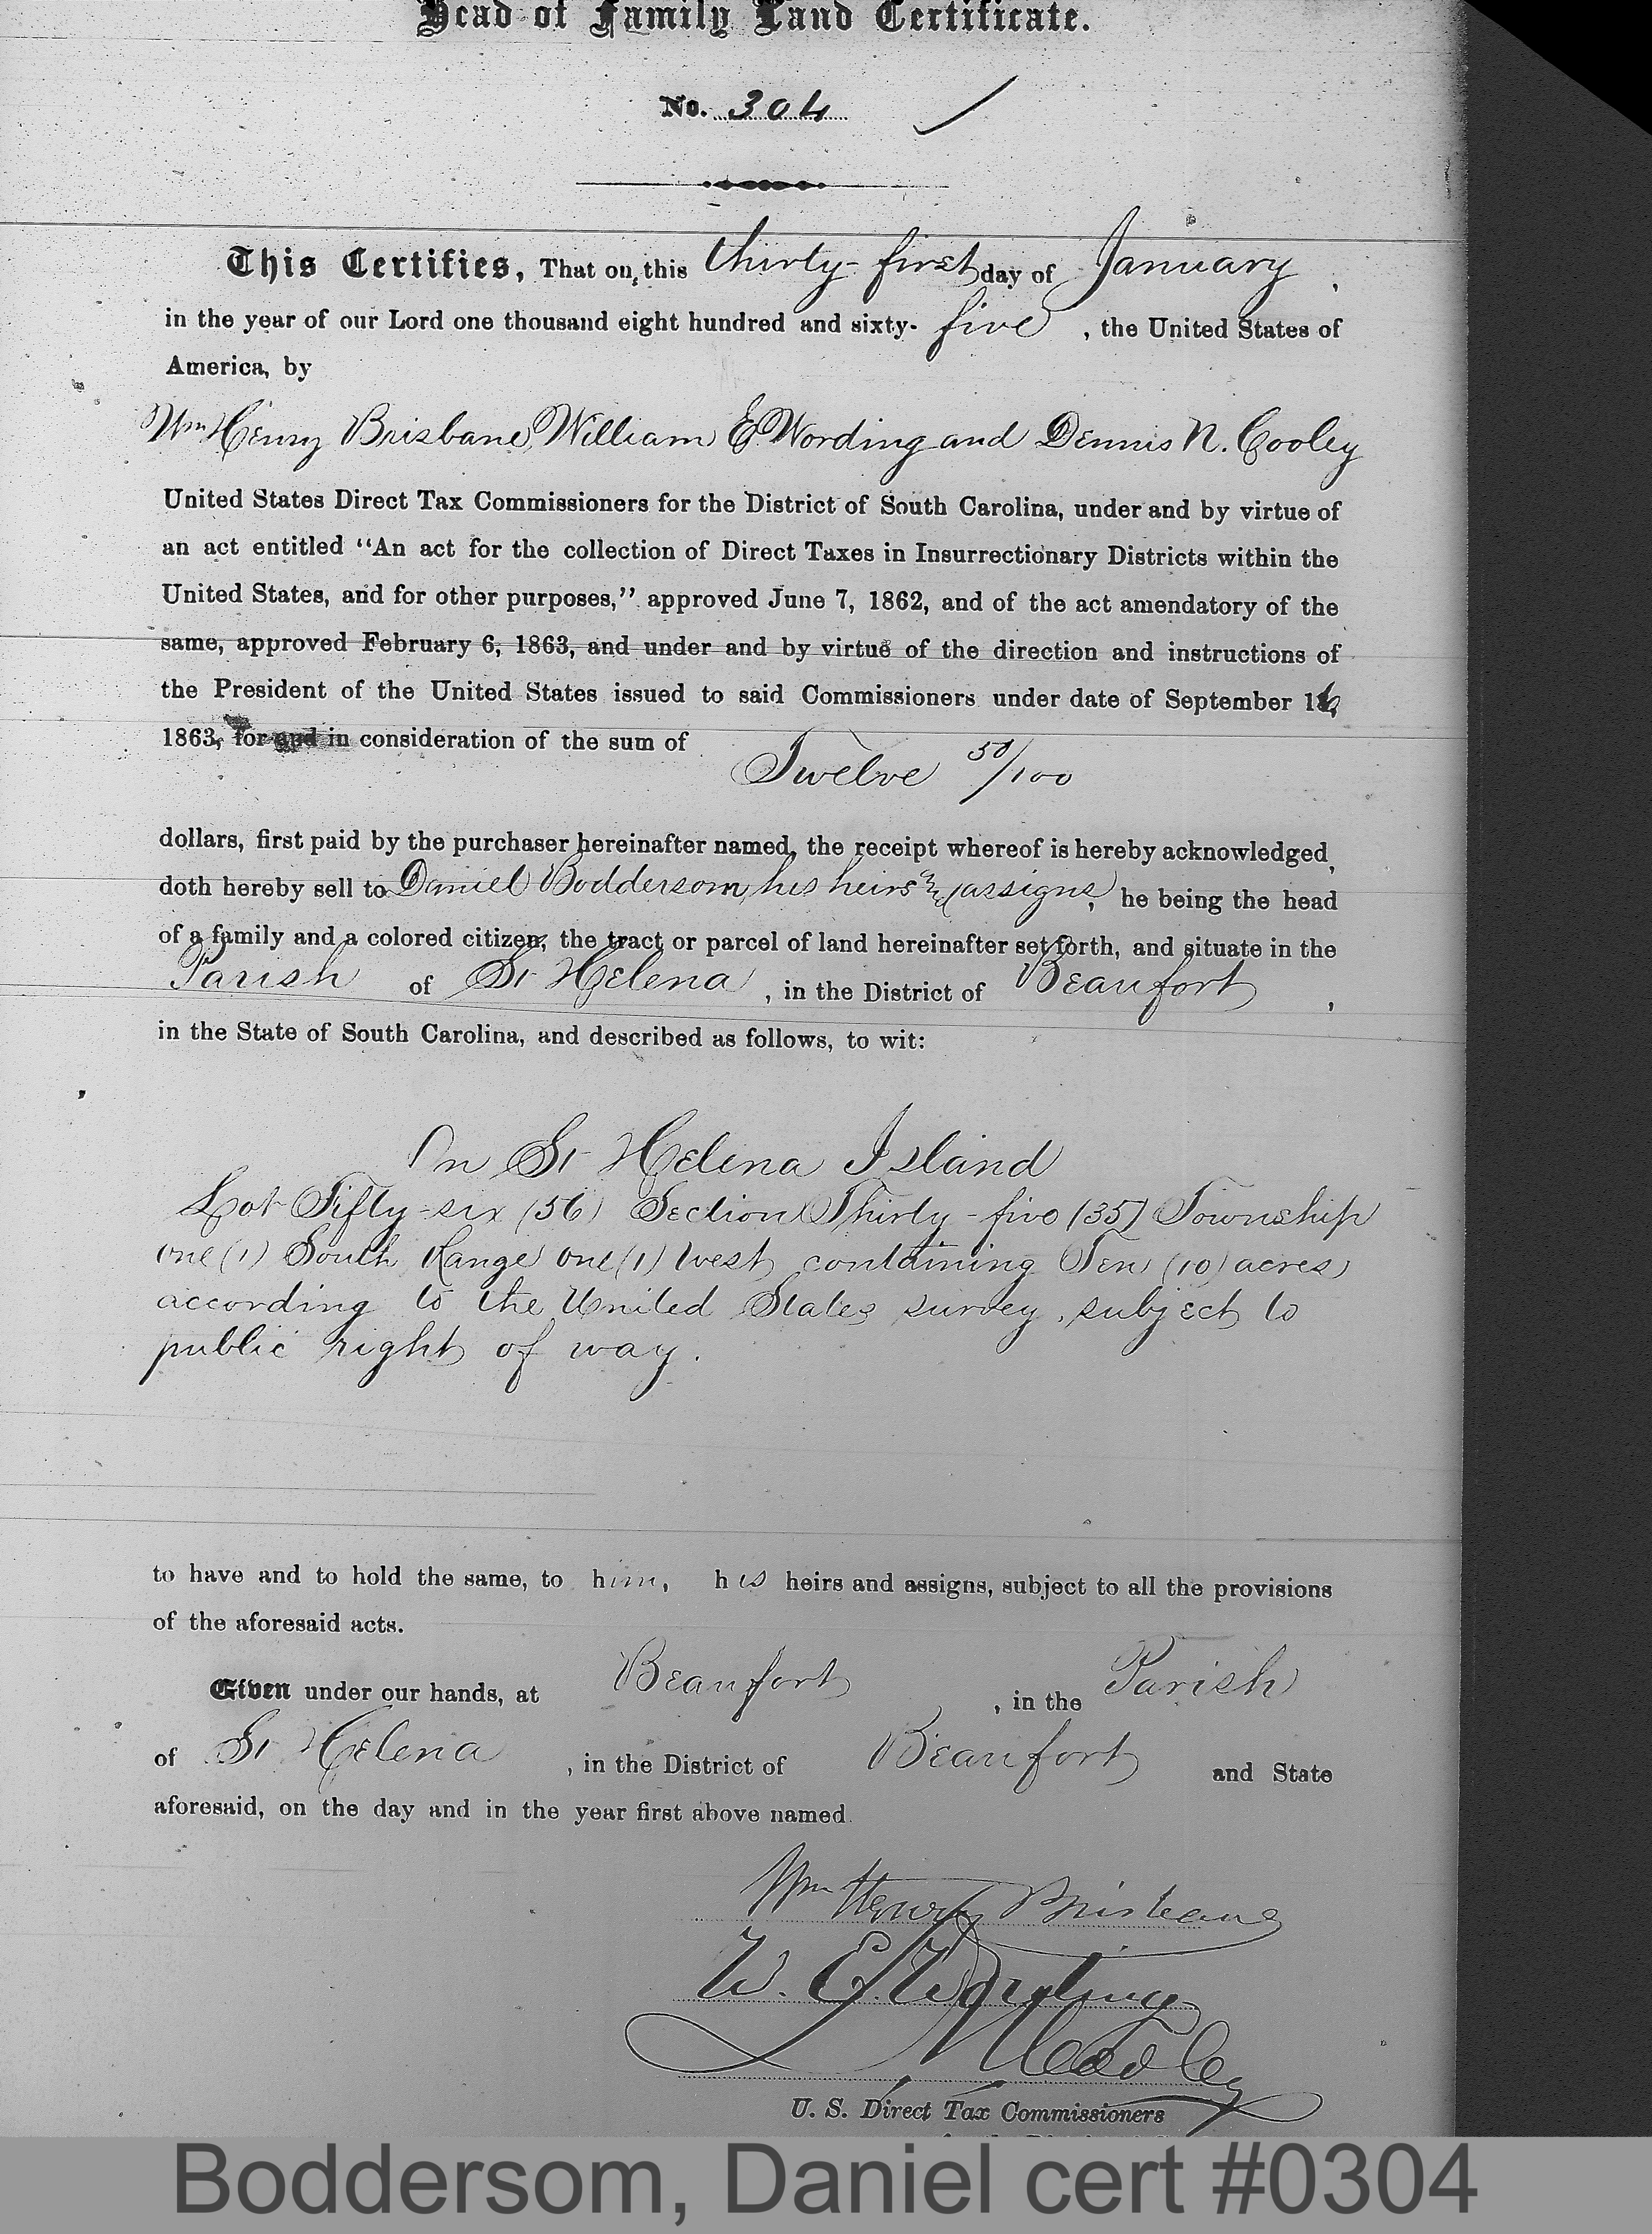 Head of Family Land Certificate.
No. 304
This Certifies, That on this thirty-first day of January,
in the year of our Lord one thousand eight hundred and sixty-five, the United States of
America, by
Wm Henry Brisbane, William E. Wording and Dennis N. Cooley
United States Direct Tax Commissioners for the District of South Carolina, under and by virtue of
an act entitled "An act for the collection of Direct Taxes in Insurrectionary Districts within the
United States, and for other purposes," approved June 7, 1862, and of the act amendatory of the
same, approved February 6, 1863, and under and by virtue of the direction and instructions of
the President of the United States issued to said Commissioners under date of September 16,
1863, for and in consideration of the sum of
Twelve 50/100
dollars, first paid by the purchaser hereinafter named, the receipt whereof is hereby acknowledged,
doth hereby sell to Daniel Boddersom, his heirs and assigns, he being the head
of a family and a colored citizen, the tract or parcel of land hereinafter set forth, and situate in the
Parish of St Helena, in the District of Beaufort,
in the State of South Carolina, and described as follows, to wit:
On St Helena Island
Lot Fifty-six (56) Section Thirty-five (35) Township
one (1) South Range one (1) West, containing Ten (10) acres
according to the United States survey, subject to
public right of way.
to have and to hold the same, to him, his heirs and assigns, subject to all the provisions
of the aforesaid acts.
Given under our hands, at Beaufort, in the Parish
of St Helena, in the District of Beaufort and State
aforesaid, on the day and in the year first above named.
Wm Henry Brisbane
W. E. Wording
D N Cooley
U. S. Direct Tax Commissioners
Boddersom, Daniel cert #0304